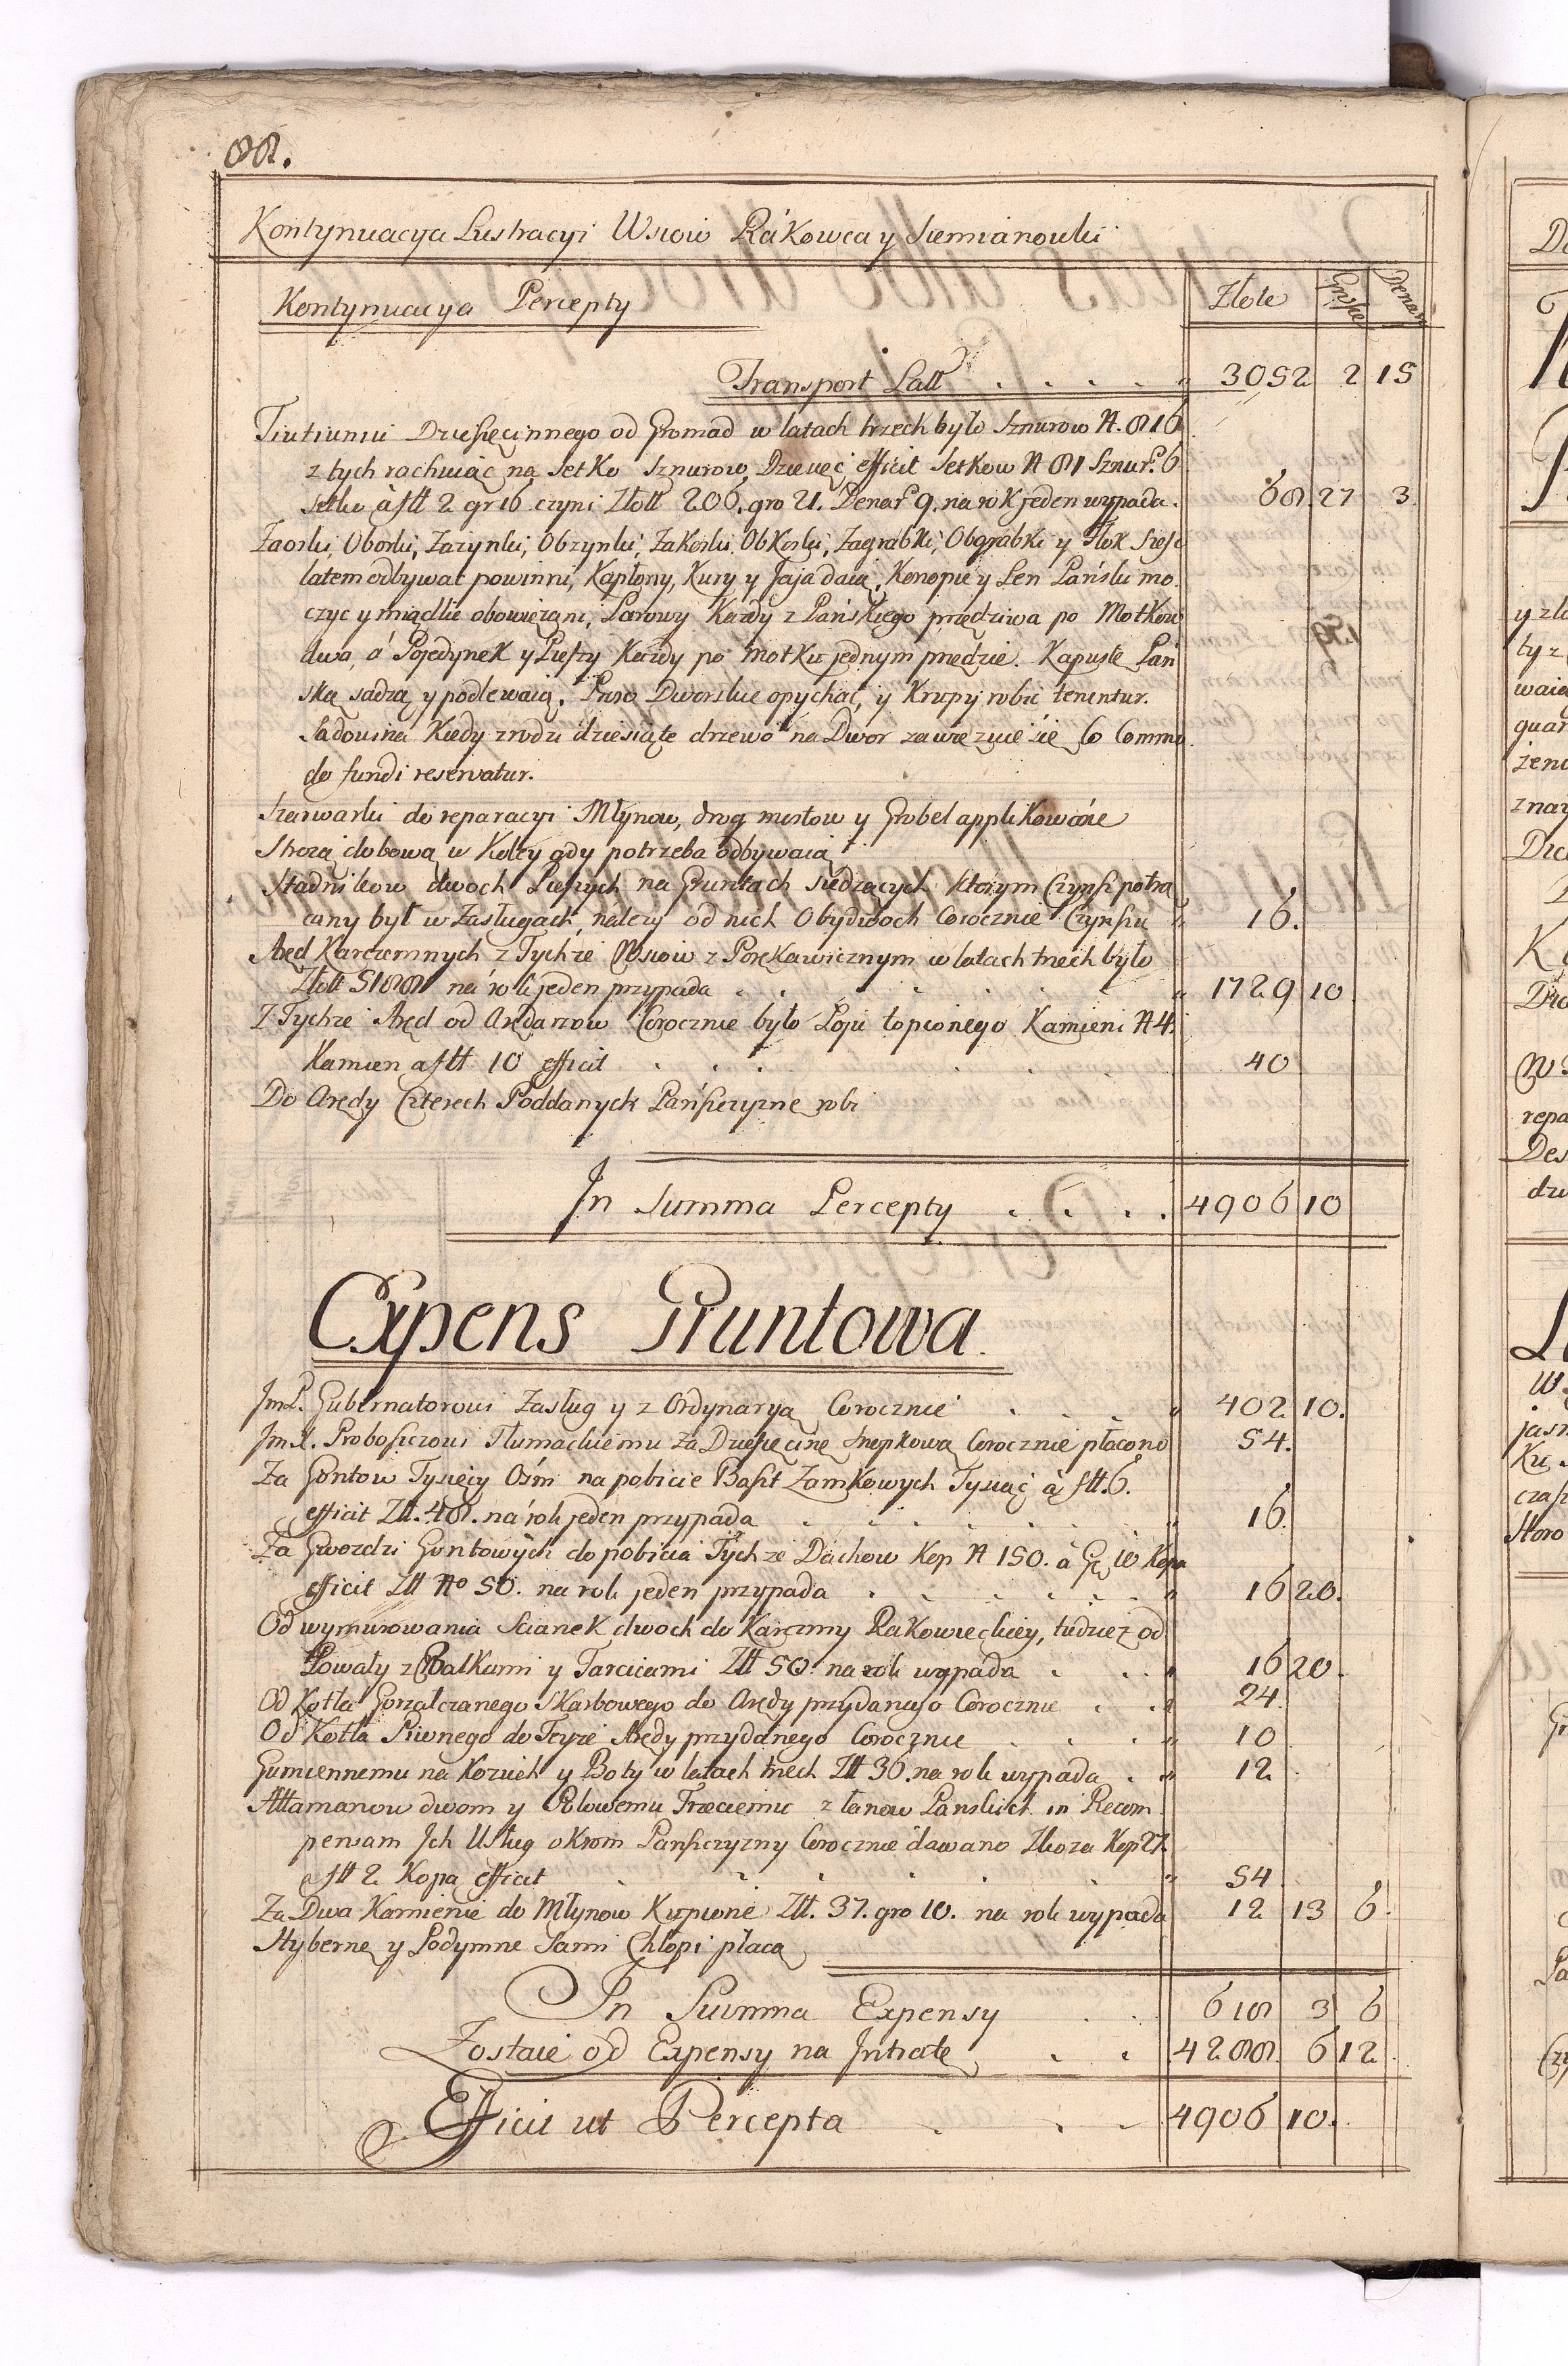 88.
Kontynuacya Lustracyi Wsiow Rakowca y Siemianowki
Kontynuacya Percepty Złote Grosze Denar
Transport Latt . . . . 3052 2 15
Tiutiuniu Dziesięcinnego od Gromad w latach trzech było Sznurow N. 816
z tych rachuiąc na Setkę Sznurow, Dziewęć efficit Setkow N 81 Sznur. 6
Setka à fltt 2 gr 16 czyni Złott 206. gro 21. Denar 9. na rok jeden wypada. 68. 27 3
Zaorki, Oborki, Zażynki, Obżynki, Zakoski, Obkoski, Zagrabki, Obgrabki y Tłok sześć
latem odbywać powinni, Kapłony, Kury y Jaja daią, Konopie y Len Pański mo
czyć y miądlić obowiązani, Parowy Każdy z Pańskiego przędziwa po Motkow
dwa, á Pojedynek y Pieszy Każdy po motku jednym przędzie. Kapustę Pań
ską sadzą y podlewaią. Proso Dworskie opychać, y Krupy robić tenentur.
Sadowina Kiedy zrodzi dziesiąte drzewo na Dwor zawięzuie się Co Commo
do fundi reservatur.
Szarwarki do reparacyi Młynow, drog mostow y Grobel applikowane
Strożą dobową w Koley gdy potrzeba odbywaią
Stadnikow dwoch Pieszych na Gruntach siedzących Ktorym Czynsz potrą
cany był w Zasługach, należy od nich Obydwoch Corocznie Czynszu 16.
Aręd Karczemnych z Tychże Wsiow z Porękawicznym w latach trzech było
Złott 5188 na rok jeden przypada . . . 1729 10
Z Tychże Aręd od Arędarzow Corocznie było Łoju topionego Kamieni N 4.
Kamien a fltt 10 efficit . . . 40
Do Arędy Czterech Poddanych Pańszczyznę robi
In Summa Percepty . . . . 4906 10
Expens Gruntowa.
JmP. Gubernatorowi Zasług y z Ordynaryą Corocznie . . . 402 10.
JmX. Proboszczowi Tłumackiemu za Dziesięcinę Snopkową Corocznie płacono 54.
Za Gontow Tysięcy Ośm na pobicie Baszt Zamkowych Tysiąc à fltt. 6.
efficit Ztt. 48. na rok jeden przypada . . . 16.
Za Gwozdzi Gontowych do pobicia Tychże Dachow Kop N 150. à Gr 10 Kopa
efficit Ztt No 50. na rok jeden przypada . . . 16 20.
Od wymurowania Scianek dwoch do Karczmy Rakowieckiey, tudzież od
Powały z Balkami y Tarcicami Ztt 50. na rok wypada . . . 16 20.
Od Kotła Gorzałczanego Skarbowego do Arędy przydanego Corocznie . . 24.
Od Kotła Piwnego do Teyże Arędy przydanego Corocznie . . . 10
Gumiennemu na Kożuch y Boty w latach trzech Ztt 36. na rok wypada . 12.
Attamanow dwom y Polowemu Trzeciemu z łanow Panskich in Recom
pensam Jch Usług okrom Pańszczyzny Corocznie dawano Zboża Kop 27.
a fltt 2 Kopa efficit . . . 54.
Za Dwa Kamienie do Młynow Kupione Ztt. 37. gro 10. na rok wypada 12 13 6.
Hybernę y Podymne Sami Chłopi płacą
In Summa Expensy . . 618 3 6
Zostaie od Expensy na Intratę . . 4288. 6 12
Efficit ut Percepta . . . 4906 10.